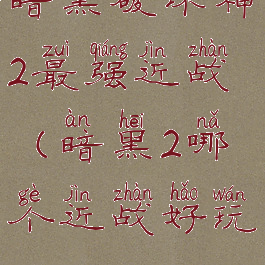 暗黑破坏神
zuì qiáng jìn zhàn
2最强近战
àn hēi nǎ
(暗黑2哪
gè jìn zhàn hǎo wán
个近战好玩